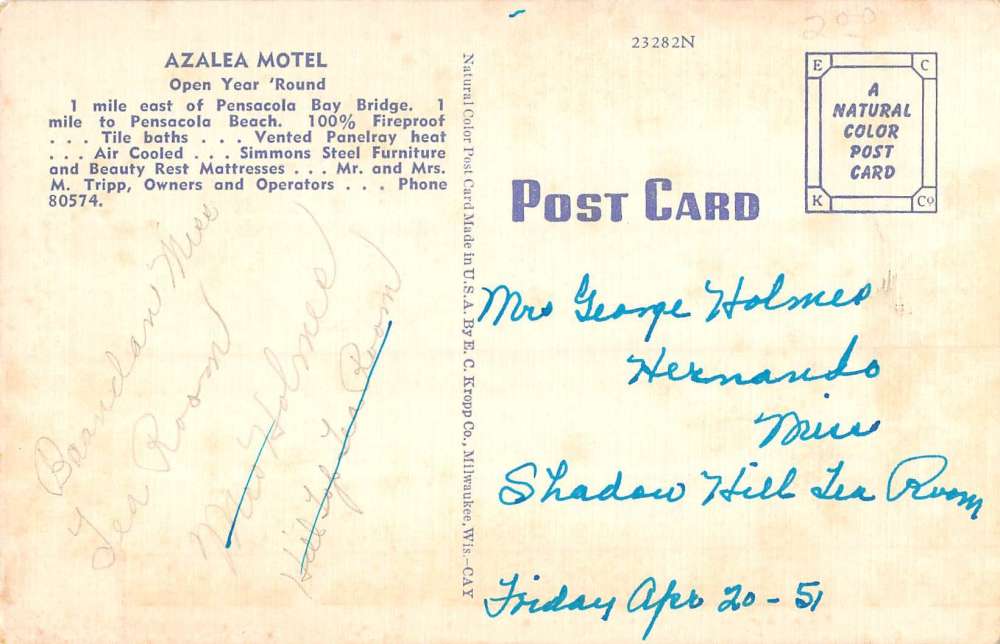 200
23282N
AZALEA MOTEL
Open Year 'Round
1 mile east of Pensacola Bay Bridge. 1
mile to Pensacola Beach. 100% Fireproof
. . . Tile baths . . . Vented Panelray heat
. . . Air Cooled . . . Simmons Steel Furniture
and Beauty Rest Mattresses . . . Mr. and Mrs.
M. Tripp, Owners and Operators . . . Phone
80574.
Miss
Tea Room
Mrs Holmes
Hill Top Tea Room
Natural Color Post Card Made in U.S.A. By E. C. Kropp Co., Milwaukee, Wis.-CAY
E C
A
NATURAL
COLOR
POST
CARD
K Co
POST CARD
Mrs George Holmes
Hernando
Miss
Shadow Hill Tea Room
Friday Apr 20 - 51